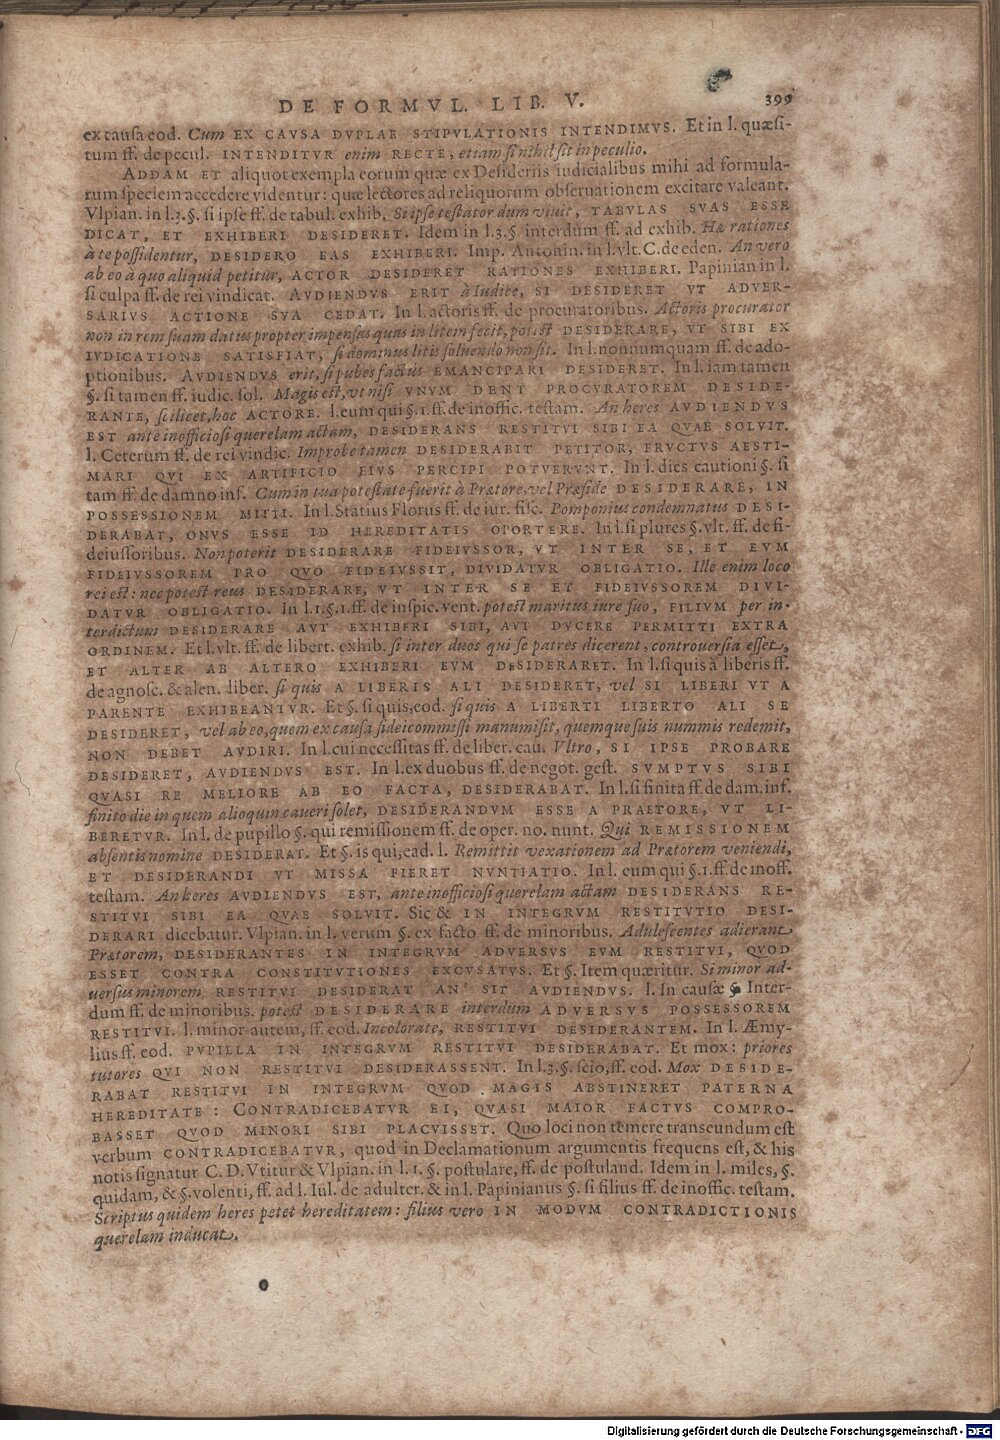 DE FORMVL. LIB. V. 399
ex causa eod. Cum EX CAVSA DVPLAE STIPVLATIONIS INTENDIMVS. Et in l. quæsi-
tum ff. de pecul. INTENDITVR enim RECTE, etiam si nihil sit in peculio.
ADDAM ET aliquot exempla eorum quæ ex Desideriis iudicialibus mihi ad formula-
rum speciem accedere videntur: quæ lectores ad reliquorum obseruationem excitare valeant.
Vlpian. in l.3.§. si ipse ff. de tabul. exhib. Si ipse testator dum viuit, TABVLAS SVAS ESSE
DICAT, ET EXHIBERI DESIDERET. Idem in l.3.§. interdum ff. ad exhib. Hæ rationes
à te possidentur, DESIDERO EAS EXHIBERI. Imp. Antonin. in l.vlt. C. de eden. An vero
ab eo à quo aliquid petitur, ACTOR DESIDERET RATIONES EXHIBERI. Papinian in l.
si culpa ff. de rei vindicat. AVDIENDVS ERIT à Iudice, SI DESIDERET VT ADVER-
SARIVS ACTIONE SVA CEDAT. In l. actoris ff. de procuratoribus. Actoris procurator
non in rem suam datus propter impensas quas in litem fecit, potest DESIDERARE, VT SIBI EX
IVDICATIONE SATISFIAT, si dominus litis soluendo non sit. In l. nonnumquam ff. de ado-
ptionibus. AVDIENDVS erit, si pubes factus EMANCIPARI DESIDERET. In l. iam tamen
§. si tamen ff. iudic. sol. Magis est, vt nisi VNVM DENT PROCVRATOREM DESIDE-
RANTE, scilicet, hoc ACTORE. l. eum qui §.1. ff. de inoffic. testam. An heres AVDIENDVS
EST ante inofficiosi querelam actam, DESIDERANS RESTITVI SIBI EA QVAE SOLVIT.
l. Ceterum ff. de rei vindic. Improbe tamen DESIDERABIT PETITOR, FRVCTVS AESTI-
MARI QVI EX ARTIFICIO EIVS PERCIPI POTVERVNT. In l. dies cautioni §. si
tam ff. de damno inf. Cum in tua potestate fuerit à Prætore, vel Præside DESIDERARE, IN
POSSESSIONEM MITTI. In l. Statius Florus ff. de iur. fisc. Pomponius condemnatus DESI-
DERABAT, ONVS ESSE ID HEREDITATIS OPORTERE. In l. si plures §. vlt. ff. de fi-
deiussoribus. Non poterit DESIDERARE FIDEIVSSOR, VT INTER SE, ET EVM
FIDEIVSSOREM PRO QVO FIDEIVSSIT, DIVIDATVR OBLIGATIO. Ille enim loco
rei est: nec potest reus DESIDERARE, VT INTER SE ET FIDEIVSSOREM DIVI-
DATVR OBLIGATIO. In l.1.§.1. ff. de inspic. vent. potest maritus iure suo, FILIVM per in-
terdictum DESIDERARE AVT EXHIBERI SIBI, AVT DVCERE PERMITTI EXTRA
ORDINEM. Et l. vlt. ff. de libert. exhib. si inter duos qui se patres dicerent, controuersia esset,
ET ALTER AB ALTERO EXHIBERI EVM DESIDERARET. In l. si quis à liberis ff.
de agnosc. & alen. liber. si quis A LIBERIS ALI DESIDERET, vel SI LIBERI VT A
PARENTE EXHIBEANTVR. Et §. si quis, eod. si quis A LIBERTI LIBERTO ALI SE
DESIDERET, vel ab eo, quem ex causa fideicommissi manumisit, quemque suis nummis redemit,
NON DEBET AVDIRI. In l. cui necessitas ff. de liber. cau. Vltro, SI IPSE PROBARE
DESIDERET, AVDIENDVS EST. In l. ex duobus ff. de negot. gest. SVMPTVS SIBI
QVASI RE MELIORE AB EO FACTA, DESIDERABAT. In l. si finita ff. de dam. inf.
finito die in quem alioquin caueri solet, DESIDERANDVM ESSE A PRAETORE, VT LI-
BERETVR. In l. de pupillo §. qui remissionem ff. de oper. no. nunt. Qui REMISSIONEM
absentis nomine DESIDERAT. Et §. is qui, ead. l. Remittit vexationem ad Prætorem veniendi,
ET DESIDERANDI VT MISSA FIERET NVNTIATIO. In l. eum qui §.1. ff. de inoff.
testam. An heres AVDIENDVS EST, ante inofficiosi querelam actam DESIDERANS RE-
STITVI SIBI EA QVAE SOLVIT. Sic & IN INTEGRVM RESTITVTIO DESI-
DERARI dicebatur. Vlpian. in l. verum §. ex facto ff. de minoribus. Adulescentes adierant
Prætorem, DESIDERANTES IN INTEGRVM ADVERSVS EVM RESTITVI, QVOD
ESSET CONTRA CONSTITVTIONES EXCVSATVS. Et §. Item quæritur. Si minor ad-
uersus minorem RESTITVI DESIDERAT AN SIT AVDIENDVS. l. In causæ § Inter-
dum ff. de minoribus. potest DESIDERARE interdum ADVERSVS POSSESSOREM
RESTITVI. l. minor autem, ff. eod. Incolorate, RESTITVI DESIDERANTEM. In l. Æmy-
lius ff. eod. PVPILLA IN INTEGRVM RESTITVI DESIDERABAT. Et mox: priores
tutores QVI NON RESTITVI DESIDERASSENT. In l.3.§. scio, ff. eod. Mox DESIDE-
RABAT RESTITVI IN INTEGRVM QVOD MAGIS ABSTINERET PATERNA
HEREDITATE: CONTRADICEBATVR EI, QVASI MAIOR FACTVS COMPRO-
BASSET QVOD MINORI SIBI PLACVISSET. Quo loci non temere transeundum est
verbum CONTRADICEBATVR, quod in Declamationum argumentis frequens est, & his
notis signatur C. D. Vtitur & Vlpian. in l. 1. §. postulare, ff. de postuland. Idem in l. miles, §.
quidam, & §. volenti, ff. ad l. Iul. de adulter. & in l. Papinianus §. si filius ff. de inoffic. testam.
Scriptus quidem heres petet hereditatem: filius vero IN MODVM CONTRADICTIONIS
querelam inducat.
Digitalisierung gefördert durch die Deutsche Forschungsgemeinschaft - DFG